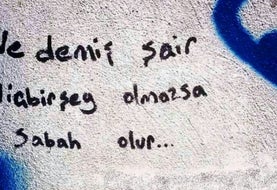 Ne demiş şair
Hiçbirşey olmazsa
Sabah olur...